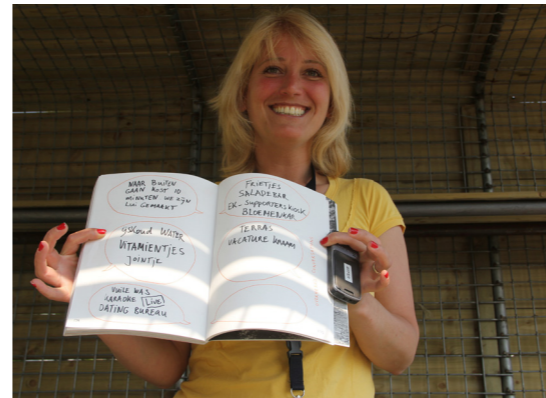 NAAR BUITEN
GAAN KOST 10
MINUTEN WE ZIJN
LUI GEMAAKT
YSKOUD WATER
VITAMIENTJES
JOINTJE
VUILE WAS
KARAOKE Live
DATING BUREAU
FRIETJES
SALADEBAR
EK-SUPPORTERS HOEK
BLOEMENBAR
TERRAS
VACATURE KRAAM